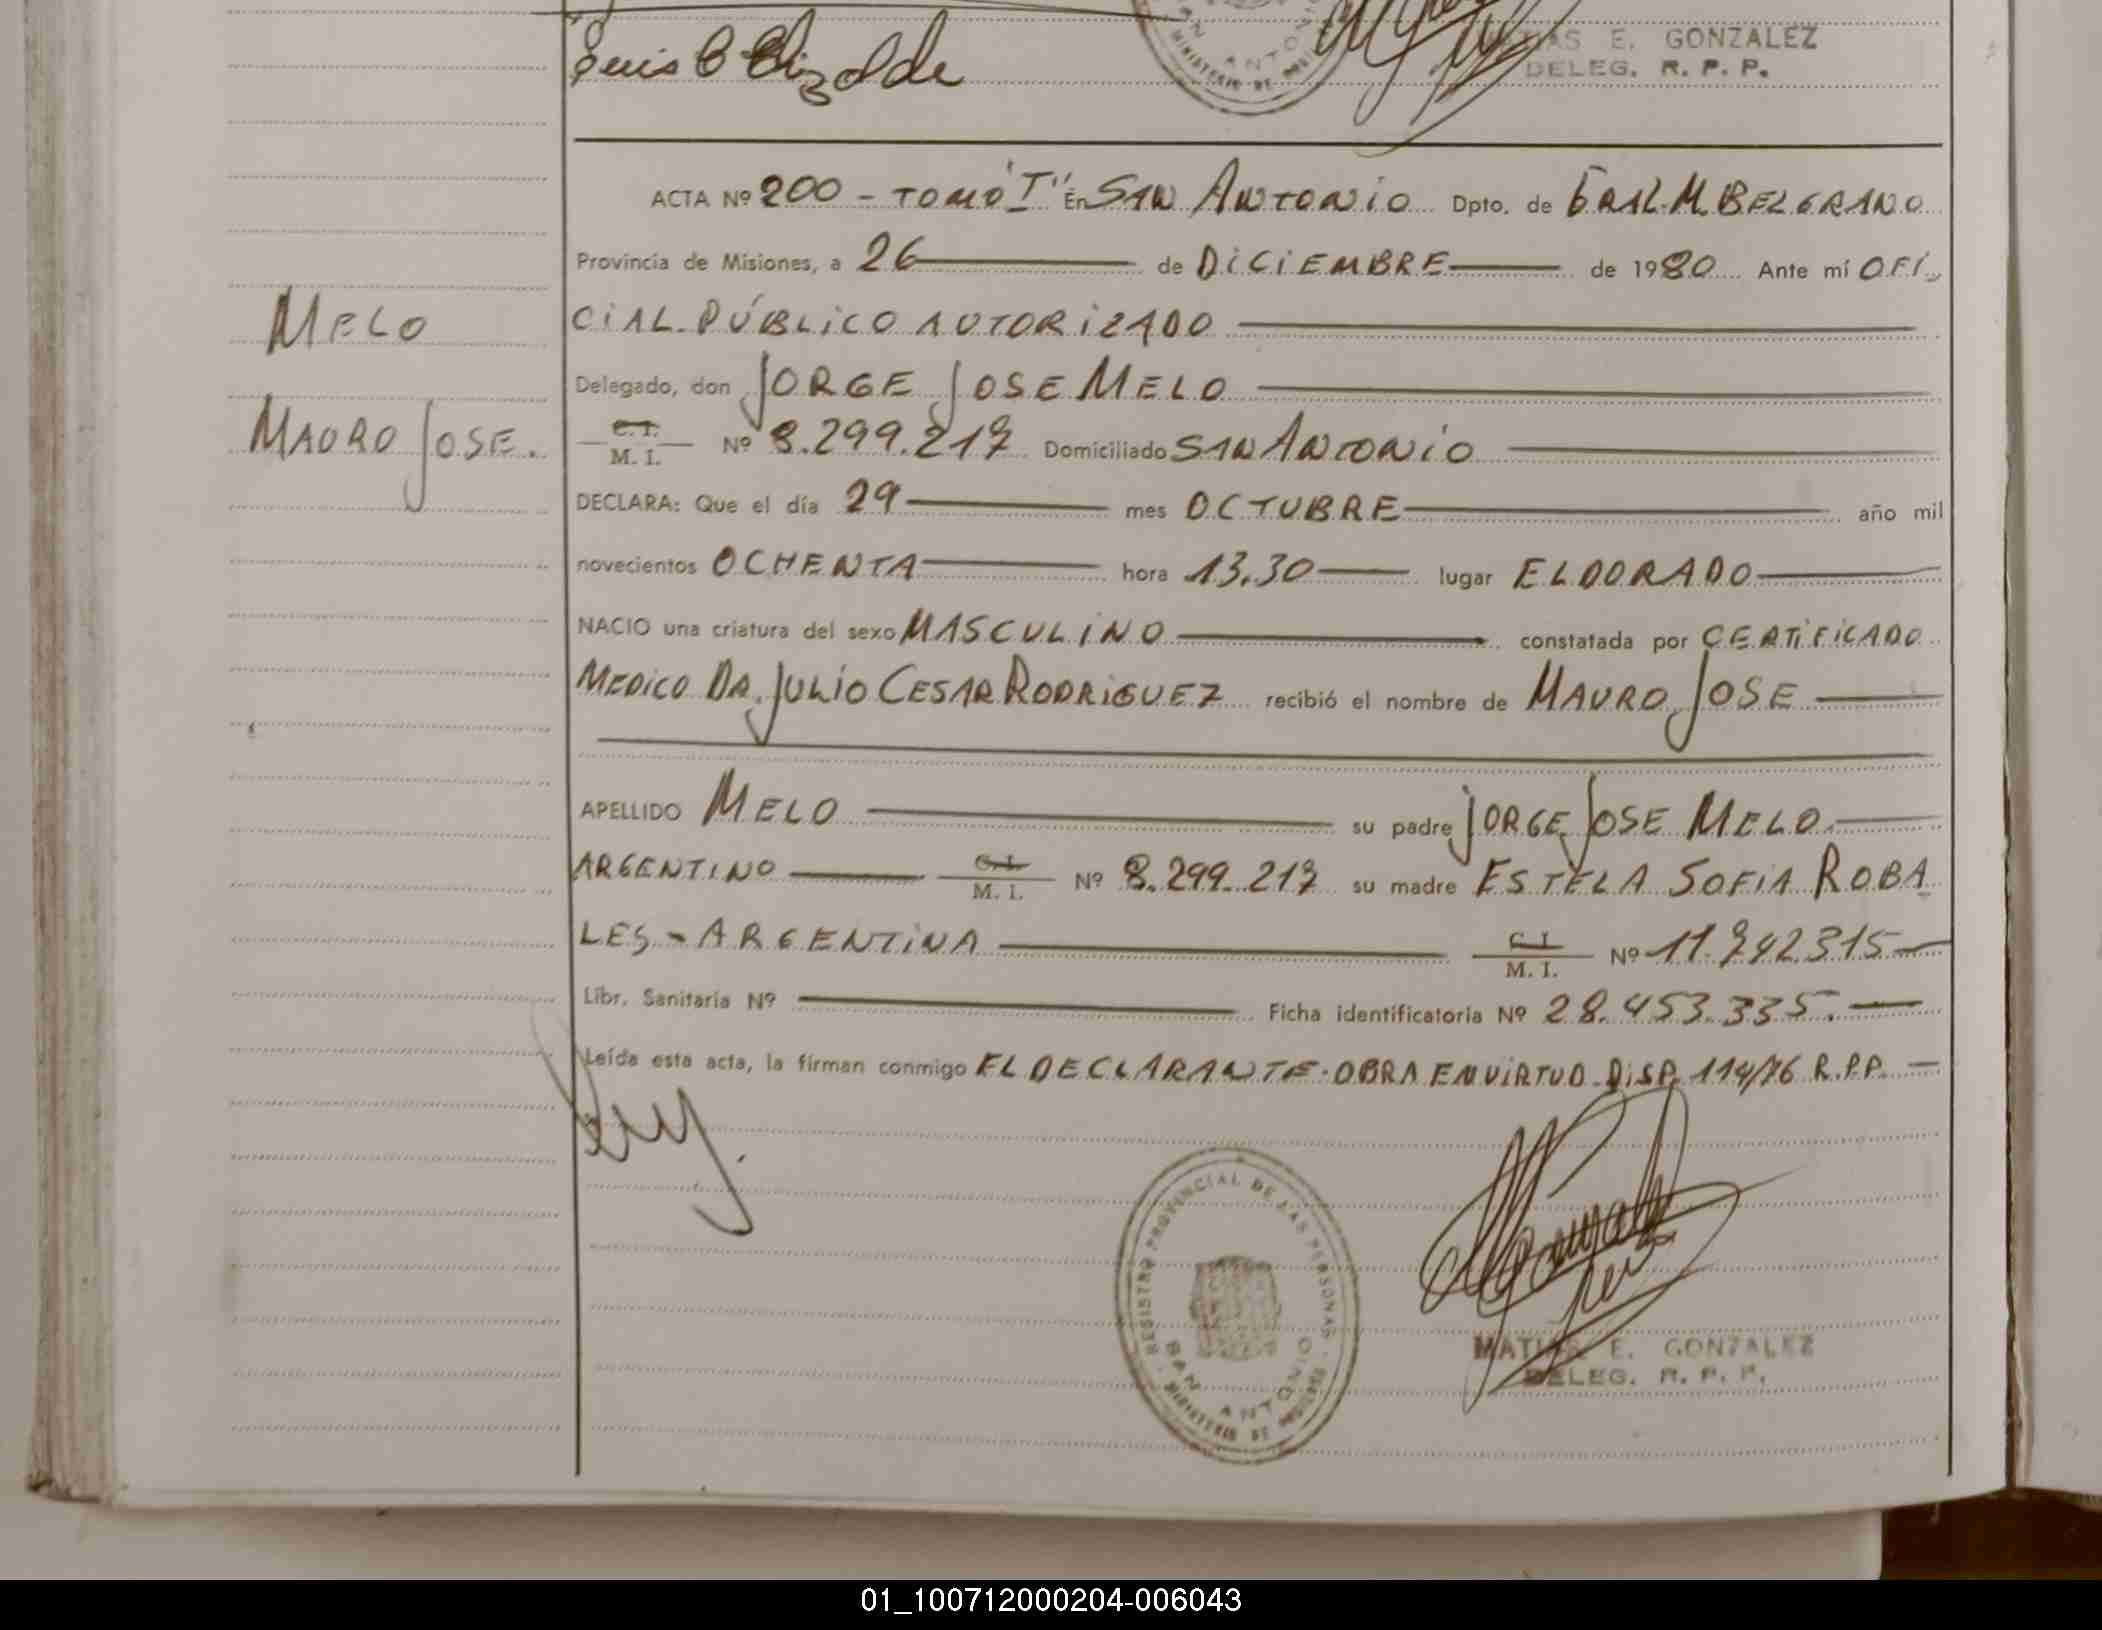 Luis C Elizalde
E. GONZALEZ
DELEG. R. P. P.
ACTA Nº 200 - TOMO "I" En SAN ANTONIO Dpto. de GRAL. M. BELGRANO
Provincia de Misiones, a 26 de DICIEMBRE de 1980 Ante mí OFI
CIAL PÚBLICO AUTORIZADO
Delegado, don JORGE JOSE MELO
MELO
C. I.
M. I. Nº 8.299.217 Domiciliado SAN ANTONIO
MAURO JOSE.
DECLARA: Que el día 29 mes OCTUBRE año mil
novecientos OCHENTA hora 13,30 lugar ELDORADO
NACIO una criatura del sexo MASCULINO constatada por CERTIFICADO
MEDICO DR. JULIO CESAR RODRIGUEZ recibió el nombre de MAURO JOSE
APELLIDO MELO su padre JORGE JOSE MELO
ARGENTINO C. I. M. I. Nº 8.299.217 su madre ESTELA SOFIA ROBA
LES - ARGENTINA C. I. M. I. Nº 11.742315
Libr. Sanitaria Nº Ficha identificatoria Nº 28.453.335.
Leída esta acta, la firman conmigo EL DECLARANTE. OBRA EN VIRTUD DISP. 114/76 R.P.P.
REGISTRO PROVINCIAL DE LAS PERSONAS
SAN ANTONIO
MINISTERIO DE
MATIAS E. GONZALEZ
DELEG. R. P. P.
01_100712000204-006043